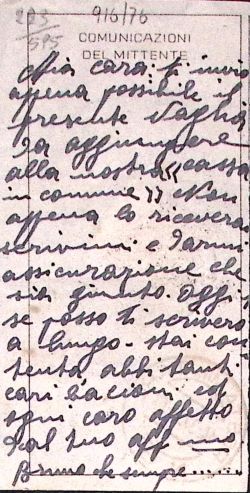 223
575
916/76
COMUNICAZIONI
DEL MITTENTE
Mia cara. ti invio
appena possibile il
presente Vaglia
da aggiungere
alla nostra "cassa
in comune" Non
appena lo riceverai
scrivimi e darmi
assicurazione che
sia giunto. Oggi
se posso ti scriverò
a lungo. stai con
tenta abbi tanti
cari bacioni ed
ogni caro affetto
dal tuo aff mo
Bruno che sempre......